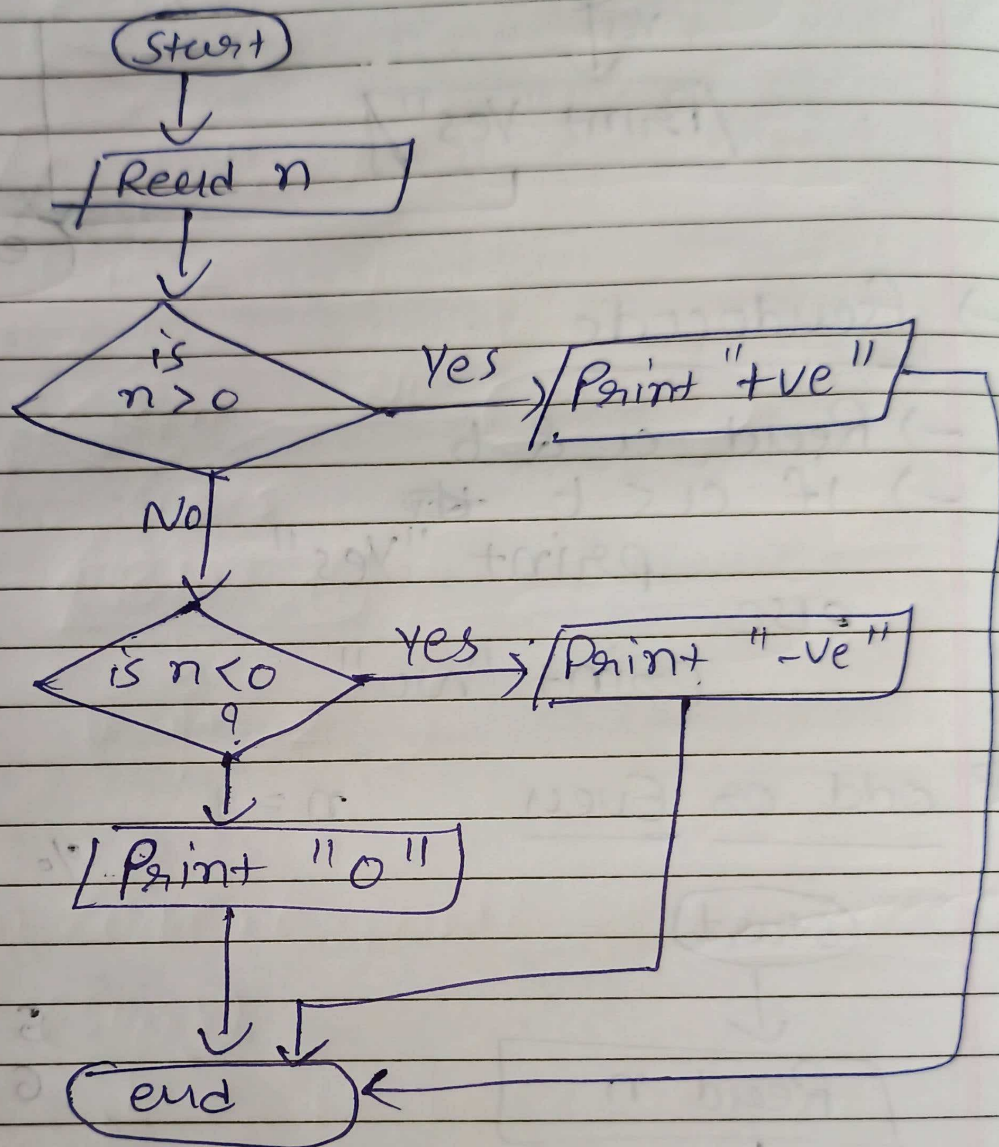 Start
Read n
is
n > 0
Yes
Print "+ve"
No
is n < 0
?
Yes
Print "-ve"
Print "0"
end